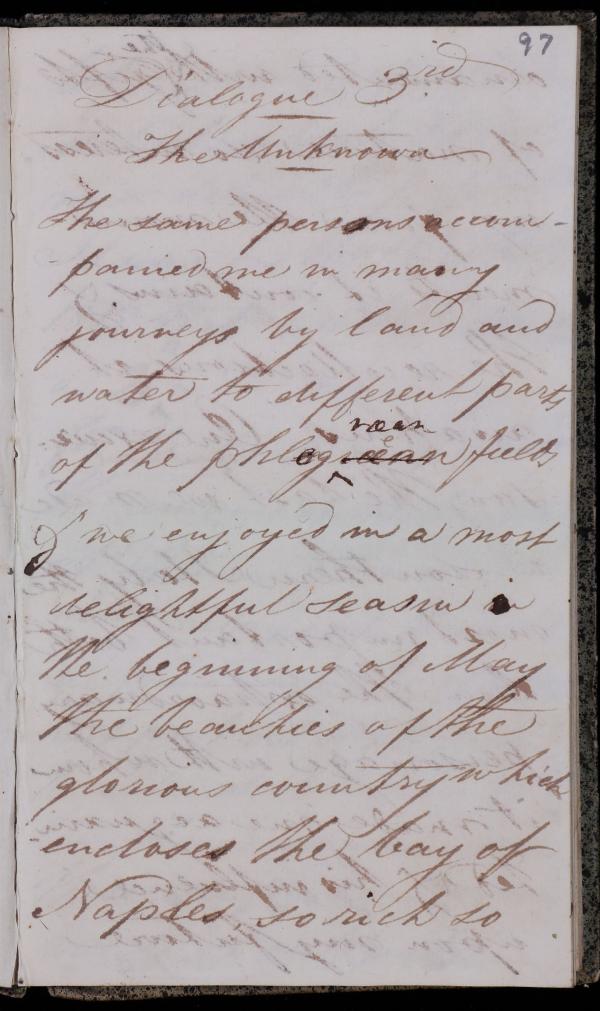 97
Dialogue 3rd
The Unknown
The same persons accom-
-panied me in many
journeys by land and
water to different parts
ræan
of the phlegræan fields
& we enjoyed in a most
delightful season in
the beginning of May
the beauties of the
glorious country which
encloses the bay of
Naples, so rich so